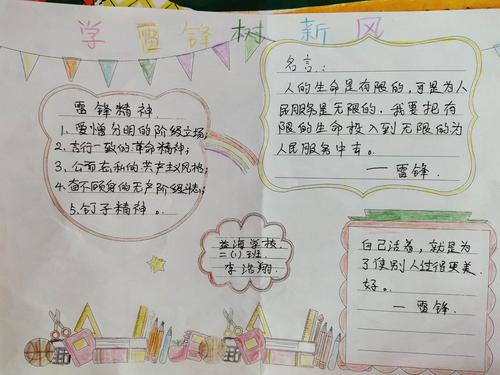 学雷锋树新风
雷锋精神
1、爱憎分明的阶级立场;
2、言行一致的革命精神;
3、公而忘私的共产主义风格;
4、奋不顾身的无产阶级斗志;
5、钉子精神。
名言:
人的生命是有限的,可是为人
民服务是无限的,我要把有
限的生命投入到无限的为
人民服务中去。
—雷锋
益海学校
二(1)班
李浩翔
自己活着,就是为
了使别人过得更美
好。
—雷锋